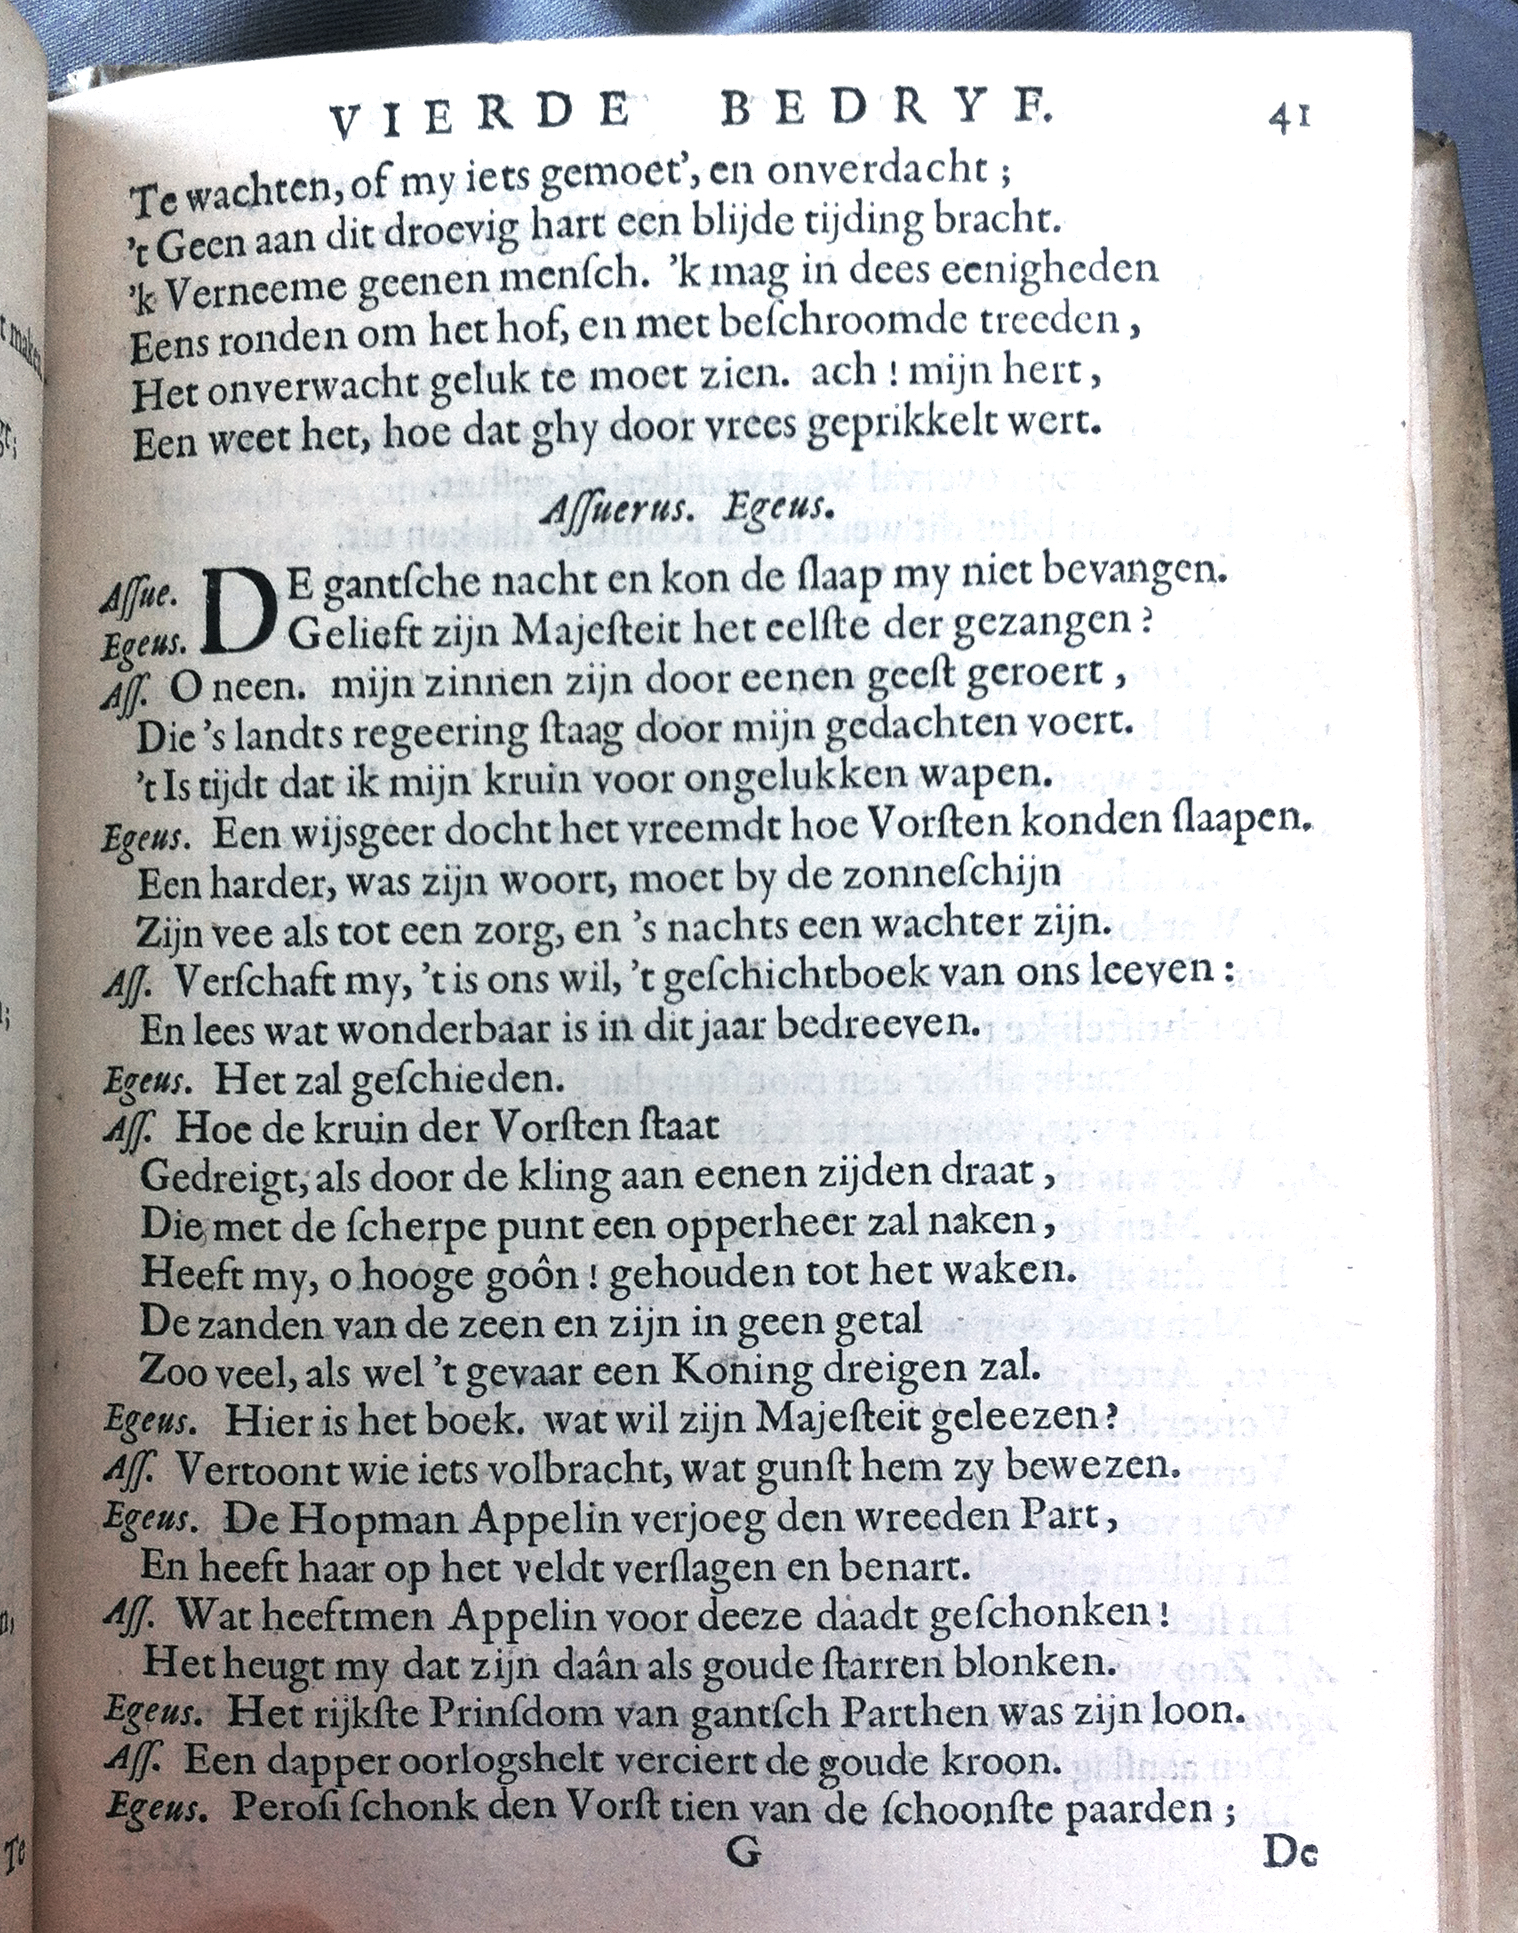 VIERDE BEDRYF. 41
Te wachten, of my iets gemoet’, en onverdacht;
’t Geen aan dit droevig hart een blijde tijding bracht.
’k Verneeme geenen menſch. ’k mag in dees eenigheden
Eens ronden om het hof, en met beſchroomde treeden,
Het onverwacht geluk te moet zien. ach! mijn hert,
Een weet het, hoe dat ghy door vrees geprikkelt wert.
Aſſuerus. Egeus.
Aſſue. DE gantſche nacht en kon de ſlaap my niet bevangen.
Egeus. Gelieft zijn Majeſteit het eelſte der gezangen?
Aſſ. O neen. mijn zinnen zijn door eenen geeſt geroert,
Die ’s landts regeering ſtaag door mijn gedachten voert.
’t Is tijdt dat ik mijn kruin voor ongelukken wapen.
Egeus. Een wijsgeer docht het vreemdt hoe Vorſten konden ſlaapen.
Een harder, was zijn woort, moet by de zonneſchijn
Zijn vee als tot een zorg, en ’s nachts een wachter zijn.
Aſſ. Verſchaft my, ’t is ons wil, ’t geſchichtboek van ons leeven:
En lees wat wonderbaar is in dit jaar bedreeven.
Egeus. Het zal geſchieden.
Aſſ. Hoe de kruin der Vorſten ſtaat
Gedreigt, als door de kling aan eenen zijden draat,
Die met de ſcherpe punt een opperheer zal naken,
Heeft my, o hooge goôn! gehouden tot het waken.
De zanden van de zeen en zijn in geen getal
Zoo veel, als wel ’t gevaar een Koning dreigen zal.
Egeus. Hier is het boek. wat wil zijn Majeſteit geleezen?
Aſſ. Vertoont wie iets volbracht, wat gunſt hem zy bewezen.
Egeus. De Hopman Appelin verjoeg den wreeden Part,
En heeft haar op het veldt verſlagen en benart.
Aſſ. Wat heeftmen Appelin voor deeze daadt geſchonken!
Het heugt my dat zijn daân als goude ſtarren blonken.
Egeus. Het rijkſte Prinſdom van gantſch Parthen was zijn loon.
Aſſ. Een dapper oorlogshelt verciert de goude kroon.
Egeus. Peroſi ſchonk den Vorſt tien van de ſchoonſte paarden;
G De